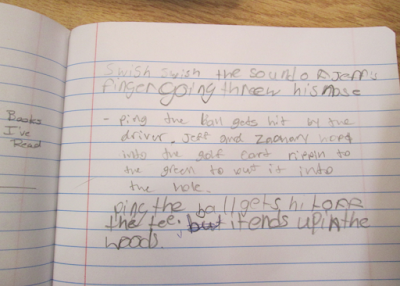 Books
I've
Read
Swish swish the sound of Jem's
finger going threw his nose
- ping the ball gets hit by the
driver. Jeff and Zachary
into the golf cart rippin to
the green to put it into
the hole.
ping the ball gets hit off
the tee. but it ends up in the
woods.